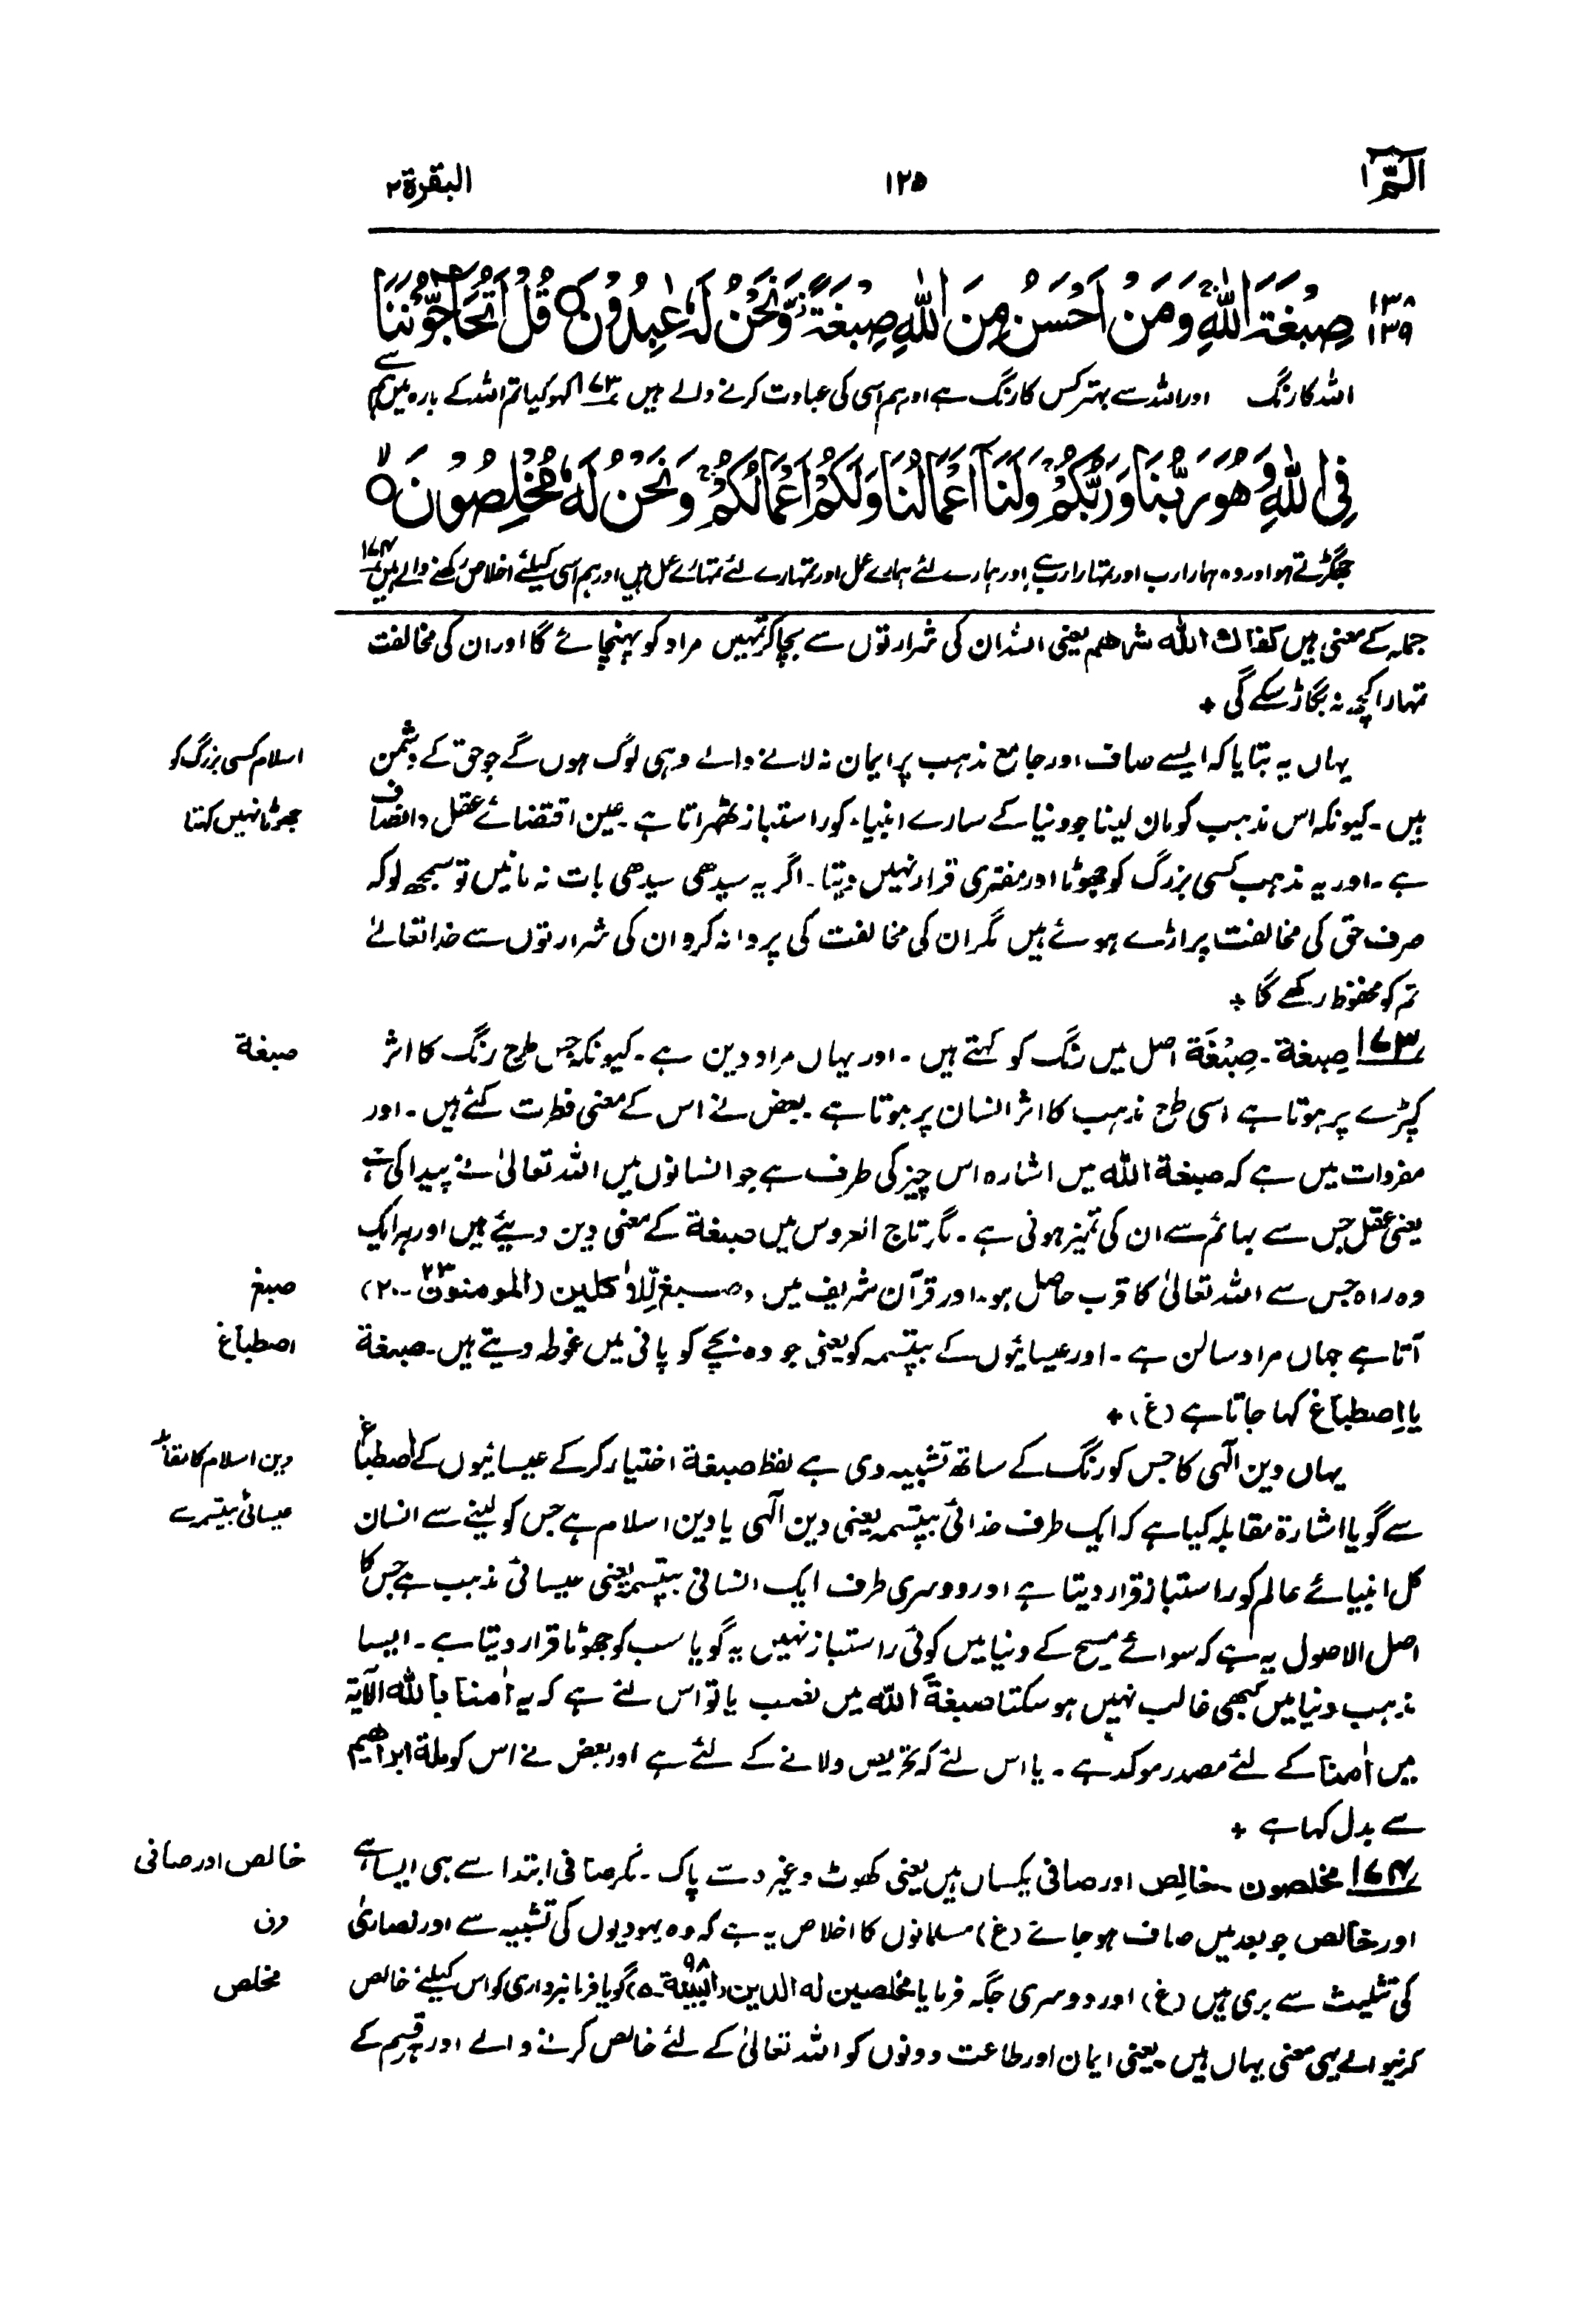 الٓمّٓ ۱
۱۲۵
البقرة ۲
۱۳۸
۱۳۹
صِبْغَةَ اللّٰهِ ۚ وَمَنْ اَحْسَنُ مِنَ اللّٰهِ صِبْغَةً ۫ وَّنَحْنُ لَهٗ عٰبِدُوْنَ ۝ قُلْ اَتُحَآجُّوْنَنَا
اللہ کا رنگ اور اللہ سے بہتر کس کا رنگ ہے اور ہم اسی کی عبادت کرنے والے ہیں ۱۷۳ کہو کیا تم اللہ کے بارہ میں ہم سے
فِي اللّٰهِ وَهُوَ رَبُّنَا وَرَبُّكُمْ ۚ وَلَنَآ اَعْمَالُنَا وَلَكُمْ اَعْمَالُكُمْ ۚ وَنَحْنُ لَهٗ مُخْلِصُوْنَ ۝ۙ
جھگڑتے ہو اور وہ ہمارا رب اور تمہارا رب ہے اور ہمارے لئے ہمارے عمل اور تمہارے لئے تمہارے عمل ہیں اور ہم اسی کیلئے اخلاص رکھنے والے ہیں ۱۷۴
جملہ کے معنی ہیں کفاك الله شرهم یعنی اللہ ان کی شرارتوں سے بچا کر تمہیں مراد کو پہنچائے گا اور ان کی مخالفت
تمہارا کچھ نہ بگاڑ سکے گی +
یہاں یہ بتایا کہ ایسے صاف اور جامع مذہب پر ایمان نہ لانے والے وہی لوگ ہوں گے جو حق کے دشمن
اسلام کسی بزرگ کو
ہیں۔ کیونکہ اس مذہب کو مان لینا جو دنیا کے سارے انبیاء کو راستباز ٹھہراتا ہے۔ عین اقتضائے عقل و انصاف
جھوٹا نہیں کہتا
ہے۔ اور یہ مذہب کسی بزرگ کو جھوٹا اور مفتری قرار نہیں دیتا۔ اگر یہ سیدھی سیدھی بات نہ مانیں تو سمجھ لو کہ
صرف حق کی مخالفت پر اڑے ہوئے ہیں مگر ان کی مخالفت کی پروا نہ کرو ان کی شرارتوں سے خدا تعالےٰ
تم کو محفوظ رکھے گا +
۱۷۳ صبغة۔ صِبْغَة اصل میں رنگ کو کہتے ہیں۔ اور یہاں مراد دین ہے۔ کیونکہ جس طرح رنگ کا اثر
صبغة
کپڑے پر ہوتا ہے اسی طرح مذہب کا اثر انسان پر ہوتا ہے۔ بعض نے اس کے معنی فطرت کئے ہیں۔ اور
مفردات میں ہے کہ صبغة الله میں اشارہ اس چیز کی طرف ہے جو انسانوں میں اللہ تعالیٰ نے پیدا کی ہے
یعنی عقل جس سے بہائم سے ان کی تمیز ہوتی ہے۔ مگر تاج العروس میں صبغة کے معنی دین دیئے ہیں اور ہر ایک
وہ راہ جس سے اللہ تعالیٰ کا قرب حاصل ہو۔ اور قرآن شریف میں وصبغ للاٰکلین (المومنون ۲۳۔۲۰)
صبغ
آتا ہے جہاں مراد سالن ہے۔ اور عیسائیوں کے بپتسمہ کو یعنی جو وہ بچے کو پانی میں غوطہ دیتے ہیں۔ صبغة
اصطباغ
یا اِصطباغ کہا جاتا ہے (غ) +
یہاں دین الٰہی کا جس کو رنگ کے ساتھ تشبیہ دی ہے لفظ صبغة اختیار کر کے عیسائیوں کے اصطباغ
دین اسلام کا مقابلہ
سے گویا اشارۃ مقابلہ کیا ہے کہ ایک طرف خدائی بپتسمہ یعنی دین الٰہی یا دین اسلام ہے جس کو لینے سے انسان
عیسائی بپتسمہ سے
کل انبیائے عالم کو راستباز قرار دیتا ہے اور دوسری طرف ایک انسانی بپتسمہ یعنی عیسائی مذہب ہے جس کا
اصل الاصول یہ ہے کہ سوائے مسیح کے دنیا میں کوئی راستباز نہیں یہ گویا سب کو جھوٹا قرار دیتا ہے۔ ایسا
مذہب دنیا میں کبھی غالب نہیں ہو سکتا صبغةَ الله میں نصب یا تو اس لئے ہے کہ یہ اٰمنا بالله الآیة
میں اٰمنا کے لئے مصدر موکد ہے۔ یا اس لئے کہ تحریص دلانے کے لئے ہے اور بعض نے اس کو ملة ابراهیم
سے بدل کہا ہے +
۱۷۴ مخلصون۔ خالِص اور صافی یکساں ہیں یعنی کھوٹ وغیرہ سے پاک۔ مگر صافی ابتدا سے ہی ایسا ہے
خالص اور صافی
اور خالص جو بعد میں صاف ہو جائے (غ) مسلمانوں کا اخلاص یہ ہے کہ وہ یہودیوں کی تشبیہ سے اور نصاریٰ
کی تثلیث سے بری ہیں (غ) اور دوسری جگہ فرمایا مخلصین له الدین (البینة ۹۸۔۵) گویا فرمانبرداری کو اس کیلئے خالص
مخلص
کرنیوالے یہی معنی یہاں ہیں۔ یعنی ایمان اور طاعت دونوں کو اللہ تعالیٰ کے لئے خالص کرنے والے اور ہر قسم کے